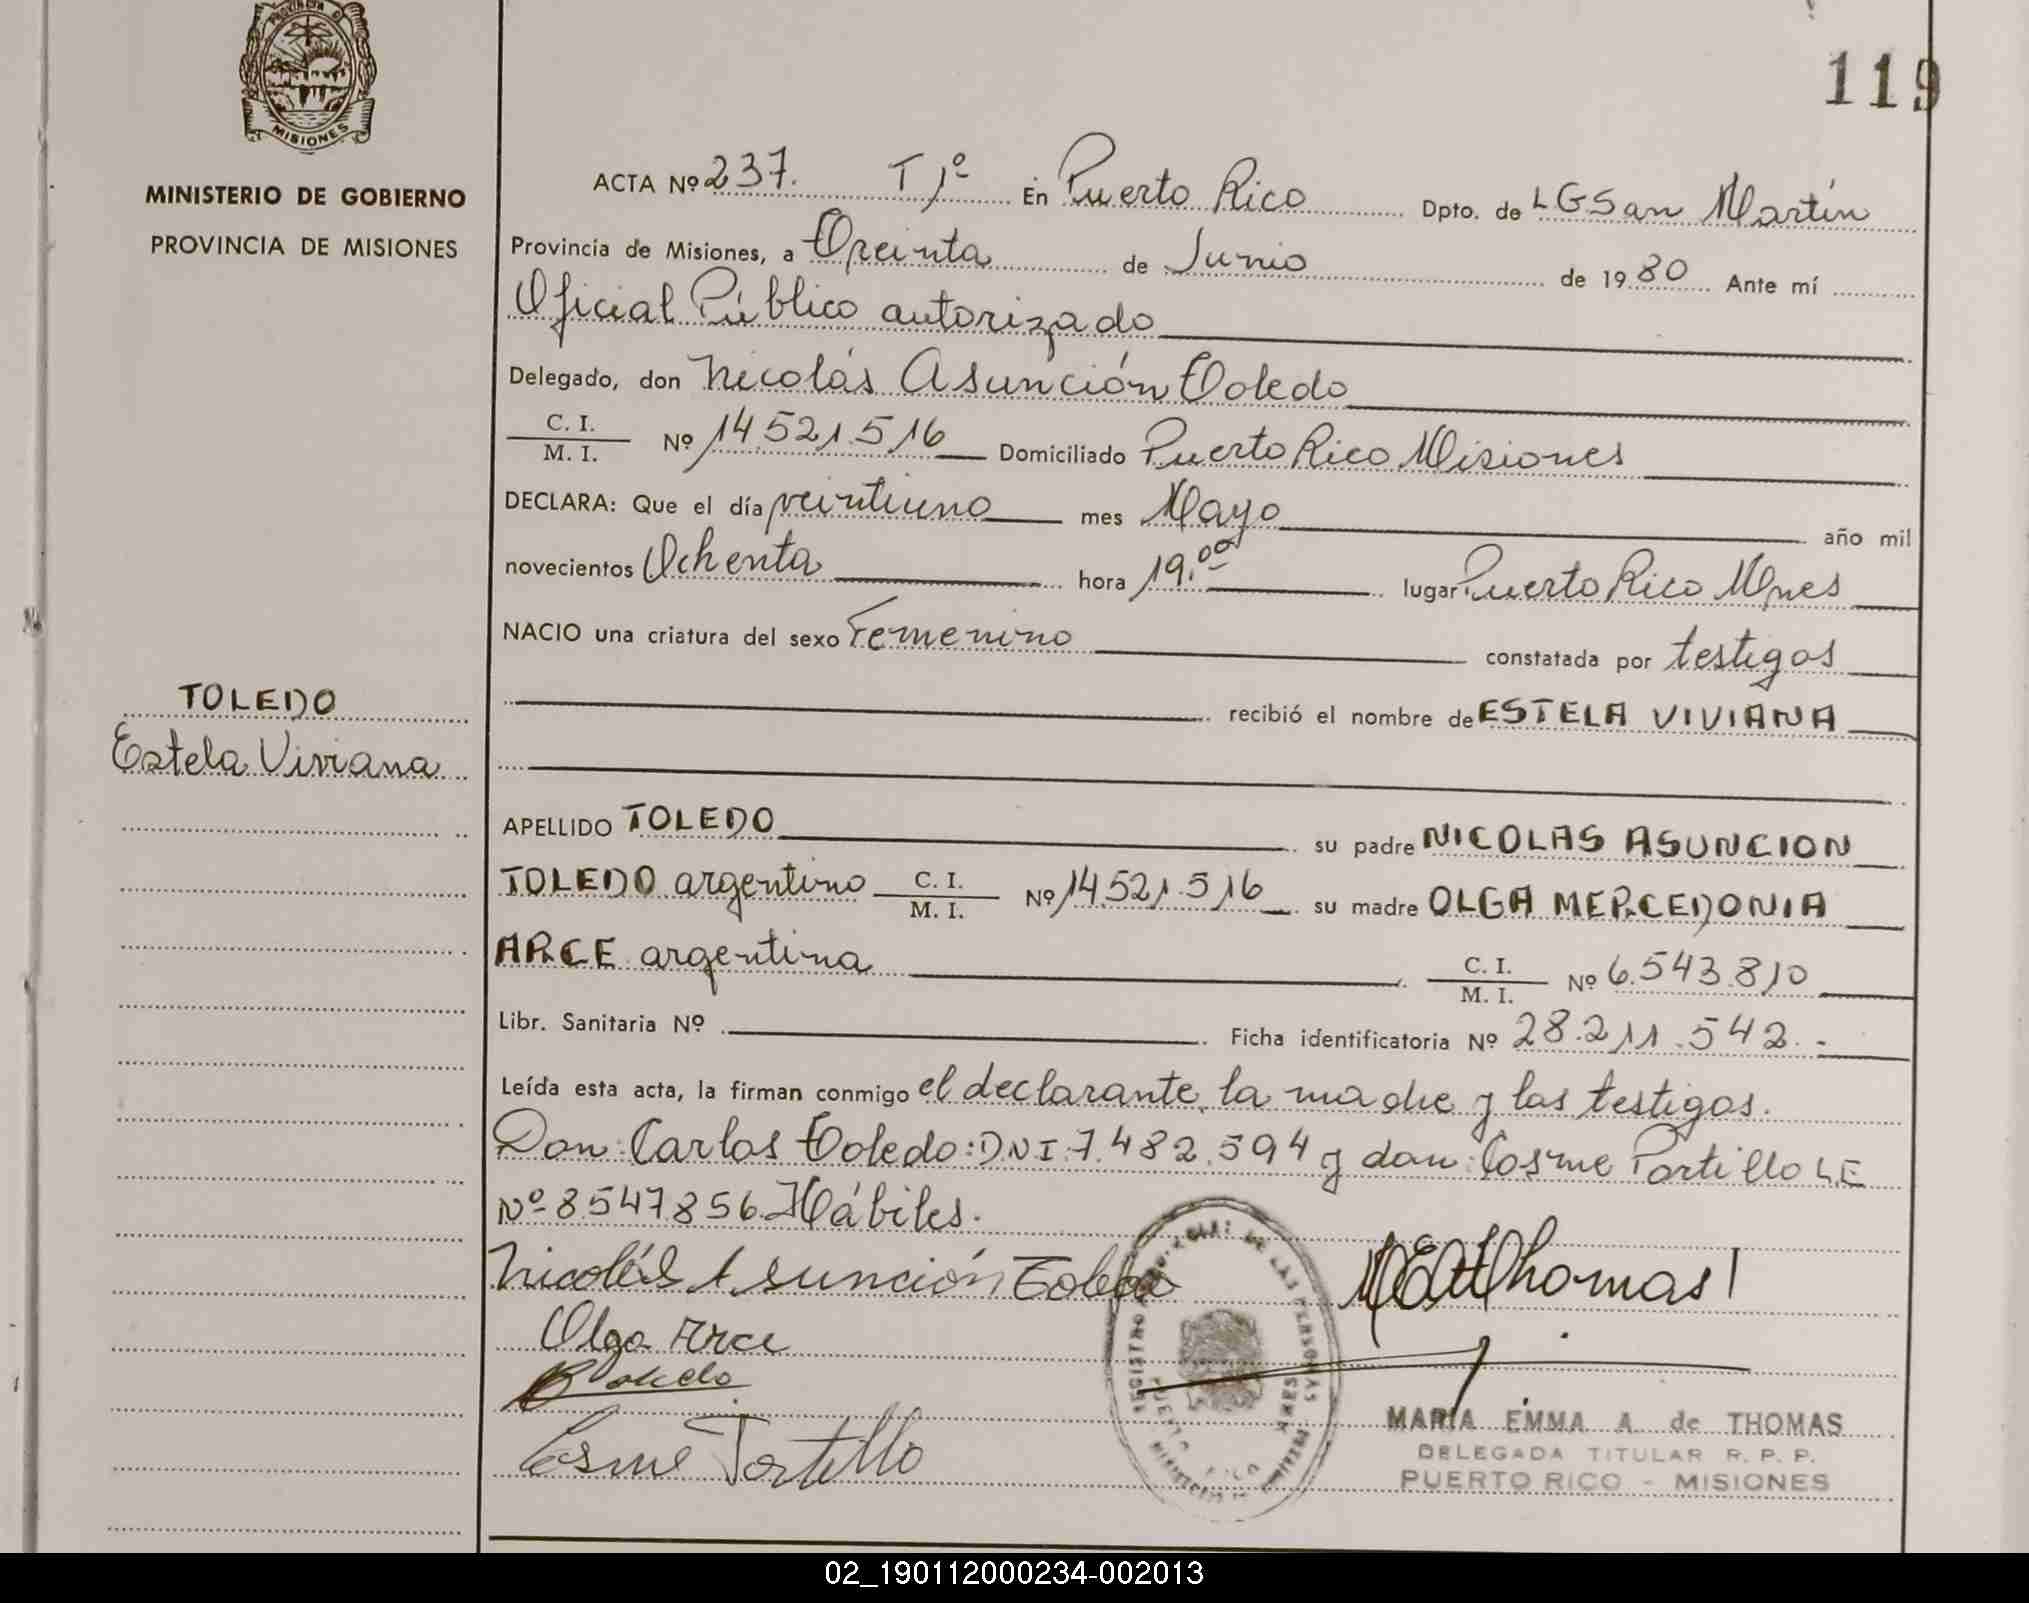 119
MISIONES
MINISTERIO DE GOBIERNO
PROVINCIA DE MISIONES
TOLEDO
Estela Viviana
ACTA Nº 237. T 1º En Puerto Rico Dpto. de LGSan Martín
Provincia de Misiones, a Treinta de Junio de 1980 Ante mí
Oficial Público autorizado
Delegado, don Nicolás Asunción Toledo
C. I. / M. I. Nº 14.521.516 Domiciliado Puerto Rico Misiones
DECLARA: Que el día veintiuno mes Mayo año mil
novecientos Ochenta hora 19.00 lugar Puerto Rico Mnes
NACIO una criatura del sexo Femenino constatada por testigos
recibió el nombre de ESTELA VIVIANA
APELLIDO TOLEDO su padre NICOLAS ASUNCION
TOLEDO argentino C. I. / M. I. Nº 14.521.516 su madre OLGA MERCEDONIA
ARCE argentina C. I. / M. I. Nº 6.543.810
Libr. Sanitaria Nº Ficha identificatoria Nº 28.211.542.-
Leída esta acta, la firman conmigo el declarante, la madre y los testigos.
Don: Carlos Toledo: DNI 7.482.594 y don: Cosme Portillo LE
Nº 8547856 Hábiles.
Nicolás Asunción Toledo
Olga Arce
Toledo
Cosme Portillo
MEAdThomas
MARIA EMMA A. de THOMAS
DELEGADA TITULAR R. P. P.
PUERTO RICO - MISIONES
02_190112000234-002013